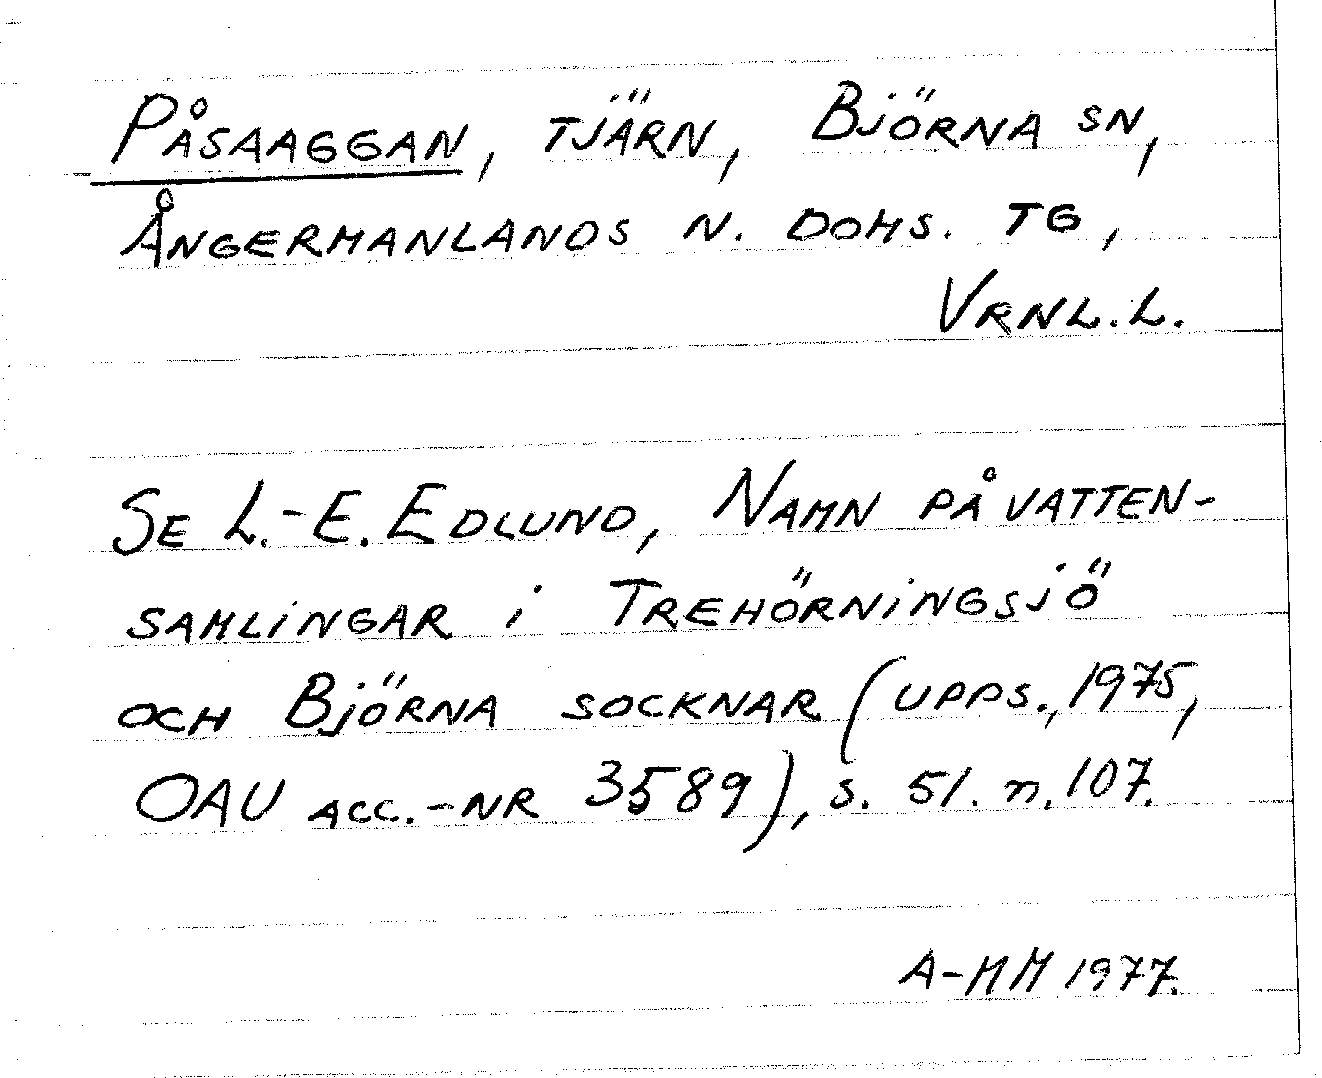 PÅSAAGGAN, TJÄRN, BJÖRNA SN,
ÅNGERMANLANDS N. DOMS. TG,
VRNL.L.
SE L.-E. EDLUND, NAMN PÅ VATTEN-
SAMLINGAR i TREHÖRNINGSJÖ
OCH BJÖRNA SOCKNAR (UPPS., 1975,
OAU ACC.-NR 3589), s. 51. n. 107.
A-MM 1977.